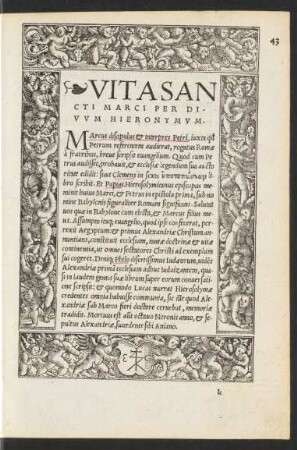 43
VITA SAN
CTI MARCI PER DI-
VVM HIERONYMVM.
Marcus discipulus & interpres Petri, iuxta qđ
Petrum referentem audierat, rogatus Romæ
à fratribus, breue scripsit euangelium. Quod cum Pe
trus audisset, probauit, & ecclesiæ legendum sua
sicut Clemens in sexto
libro scribit. Et Papias Hierapolitanus episcopus me
minit huius Marci, & Petrus in epistola prima, sub no
mine Babylonis figuraliter Romam significans: Salutat
uos quæ in Babylone cum electa, & Marcus filius me
us. Assumpto itaq; euangelio, quod ipse confecerat, per
rexit Aegyptum, & primus Alexandriæ Christum an
nuntians, constituit ecclesiam, tanta doctrina & uitæ
continentia, ut omnes sectatores Christi ad exemplum
sui cogeret. Deniq; Philo disertissimus Iudæorum, uidens
Alexandriæ primã ecclesiam adhuc iudaizantem, qua-
si in laudem gentis suæ librum super eorum conuersa-
tione scripsit: & quomodo Lucas narrat Hierosolymæ
credentes omnia habuisse communia, sic ille quod Alexan
driæ sub Marco fieri doctore cernebat, memoriæ
tradidit. Mortuus est aũt octauo Neronis anno, & se-
pultus Alexandriæ, succedente sibi Aniano.
k